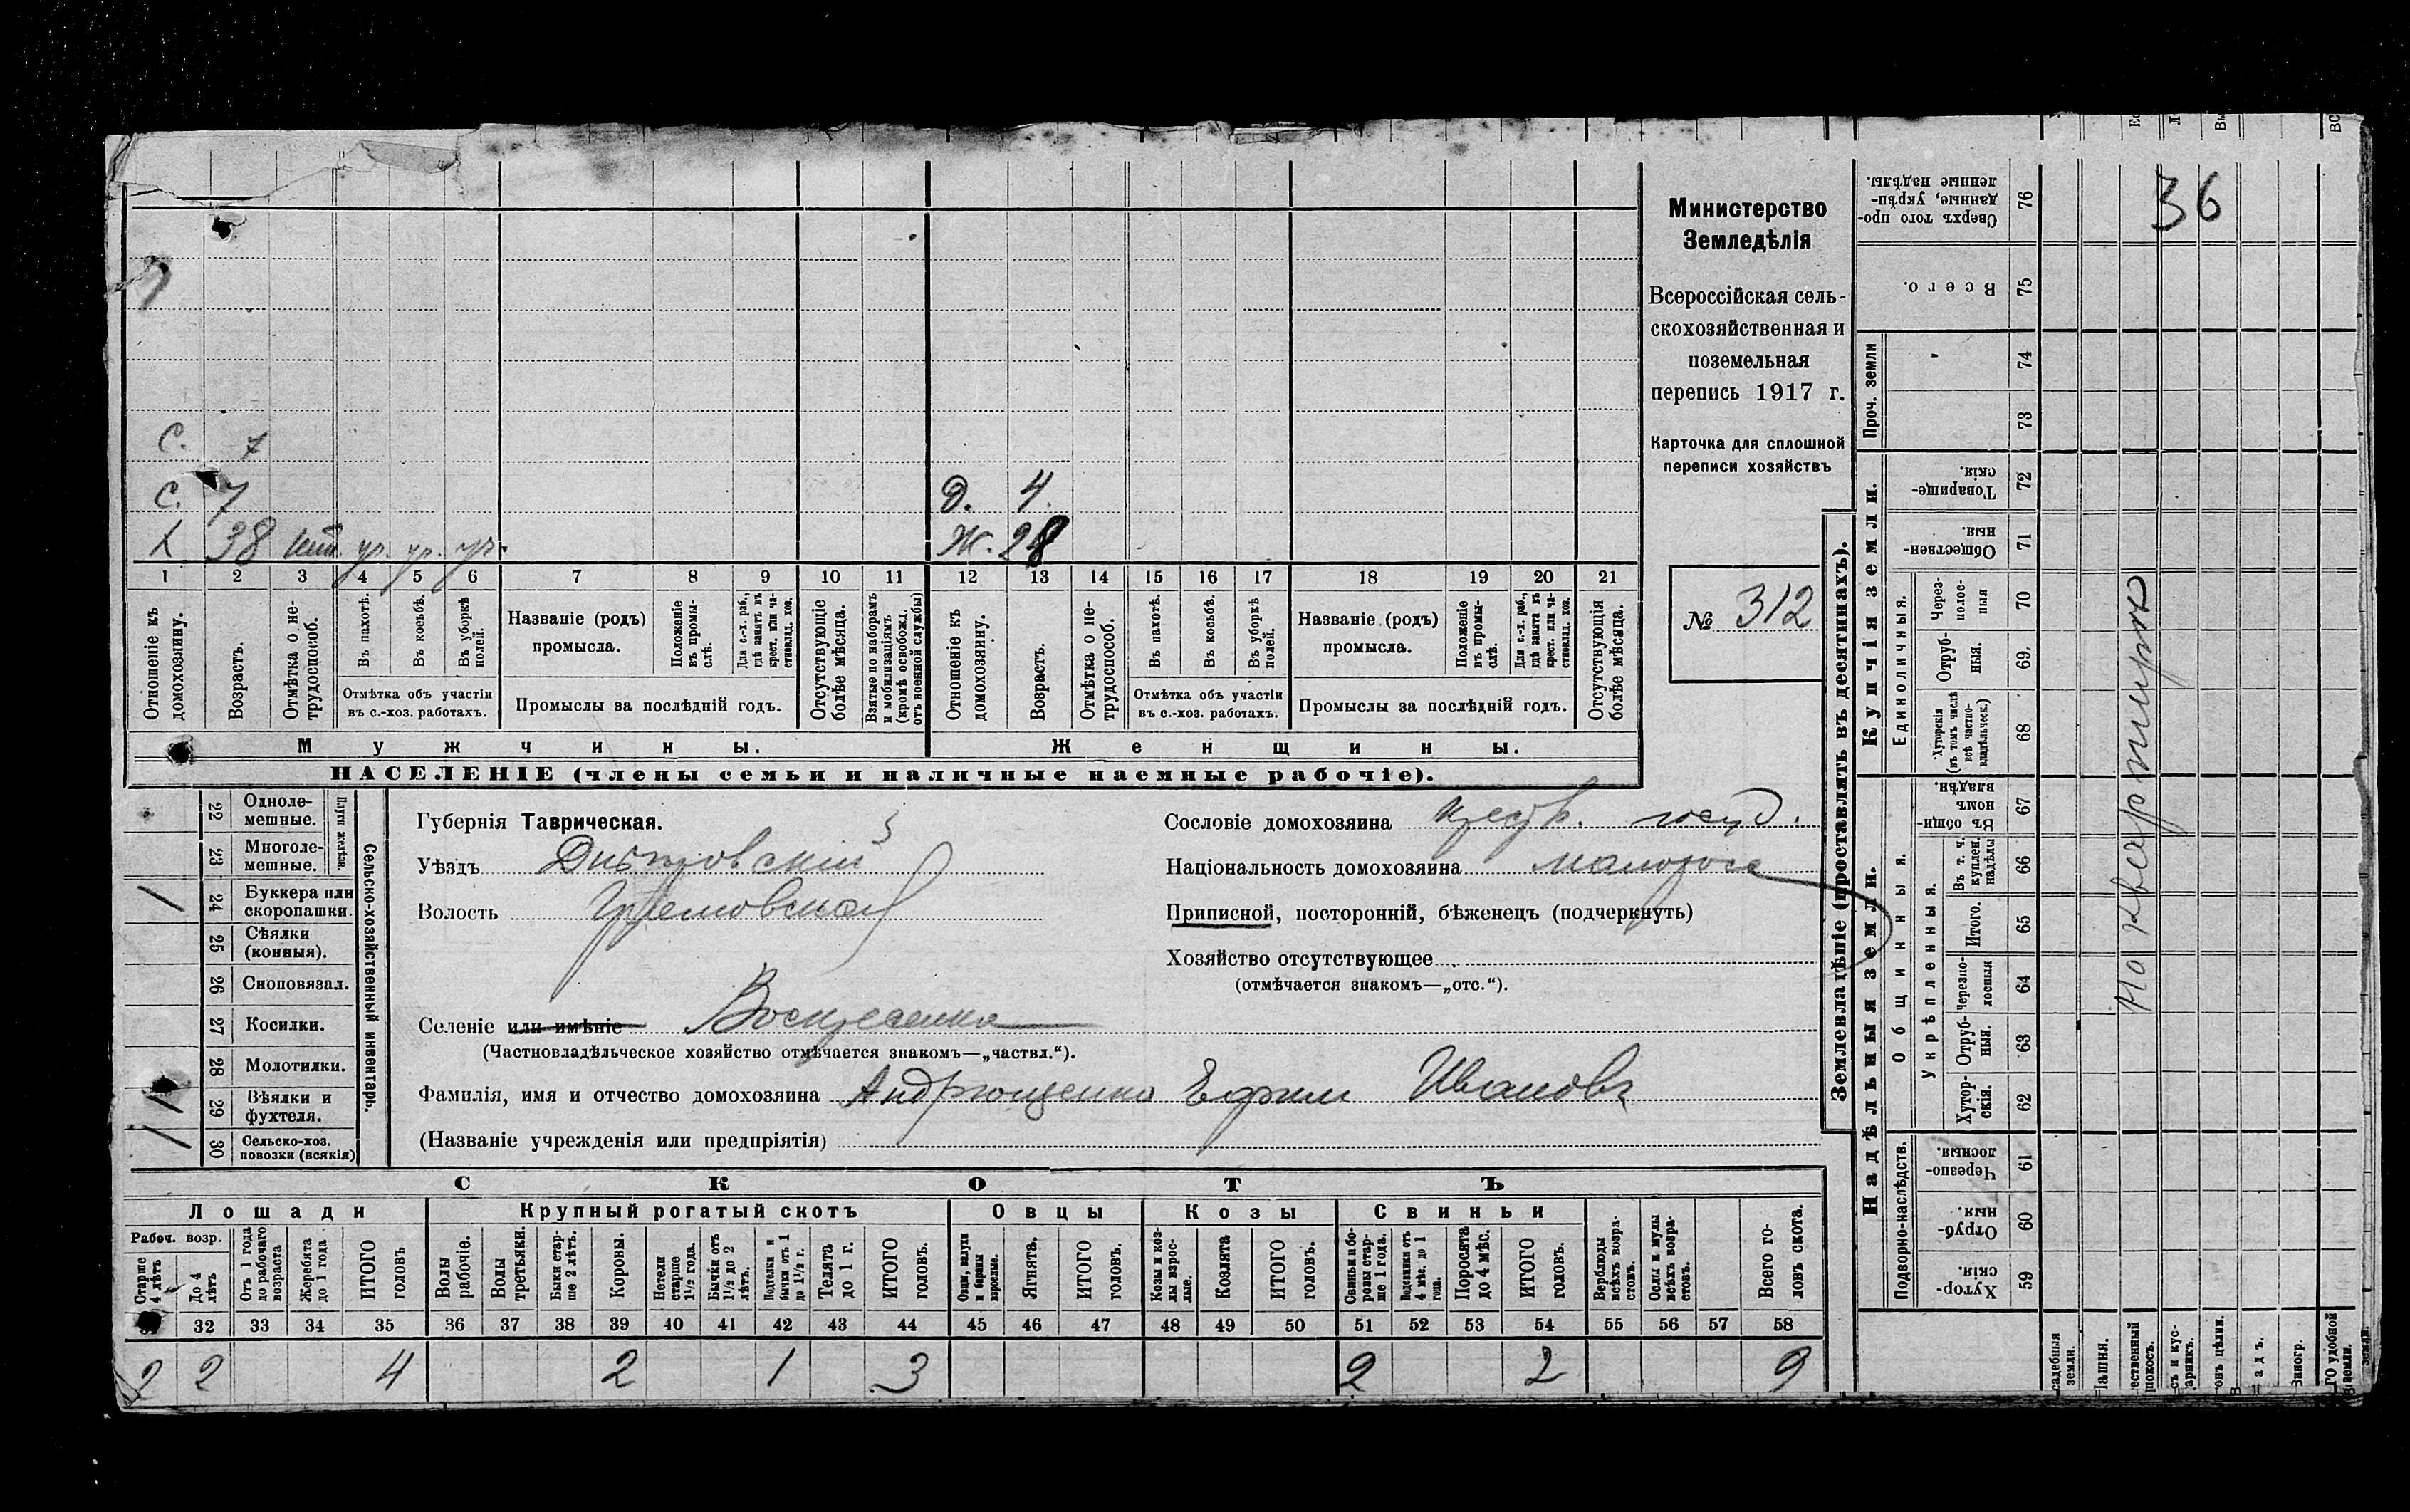 Министерство
Земледѣлія
Всероссійская сель-
скохозяйственная и
поземельная
перепись 1917 г.
Карточка для сплошной
переписи хозяйствъ
№ 312
С. 7
С. 7 Д. 4.
Х 38 ур. ур. ур. Ж. 28
1 2 3 4 5 6 7 8 9 10 11 12 13 14 15 16 17 18 19 20 21
Отношеніе къ домохозяину.
Возрастъ.
Отмѣтка о не-трудоспособ.
Въ пахотѣ.
Въ косьбѣ.
Въ уборкѣ полей.
Отмѣтка объ участіи
въ с.-хоз. работахъ.
Названіе (родъ)
промысла.
Положеніе въ промы-слѣ.
Для с.-х. раб., гдѣ занятъ въ крест. или ча-стновлад. хоз.
Промыслы за послѣдній годъ.
Отсутствующіе болѣе мѣсяца.
Взятые по наборамъ и мобилизаціямъ (кромѣ освобожд. отъ военной службы)
Отношеніе къ домохозяину.
Возрастъ.
Отмѣтка о не-трудоспособ.
Въ пахотѣ.
Въ косьбѣ.
Въ уборкѣ полей.
Отмѣтка объ участіи
въ с.-хоз. работахъ.
Названіе (родъ)
промысла.
Положеніе въ промы-слѣ.
Для с.-х. раб., гдѣ занята въ крест. или ча-стновлад. хоз.
Промыслы за послѣдній годъ.
Отсутствующія болѣе мѣсяца.
Мужчины. Женщины.
НАСЕЛЕНІЕ (члены семьи и наличные наемные рабочіе).
Сельско-хозяйственный инвентарь.
Плуги желѣзн.
22 Одноле-мешные.
23 Многоле-мешные.
/ 24 Буккера или скоропашки.
25 Сѣялки (конныя).
26 Сноповязал.
27 Косилки.
28 Молотилки.
/ 29 Вѣялки и фухтеля.
/ 30 Сельско-хоз. повозки (всякія)
Губернія Таврическая.
Уѣздъ Днѣпровскій
Волость
Селеніе или имѣніе Воскресенка
(Частновладѣльческое хозяйство отмѣчается знакомъ—„частвл.“).
Фамилія, имя и отчество домохозяина Андрющенко Ефим Иванов
(Названіе учрежденія или предпріятія)
Сословіе домохозяина крест. госуд.
Національность домохозяина малоросс
Приписной, посторонній, бѣженецъ (подчеркнуть)
Хозяйство отсутствующее
(отмѣчается знакомъ—„отс.“).
СКОТЪ
Лошади Крупный рогатый скотъ Овцы Козы Свиньи
Рабоч. возр.
Старше 4 лѣтъ
До 4 лѣтъ
Отъ 1 года до рабочаго возраста
Жеребята до 1 года
ИТОГО головъ
Волы рабочіе.
Волы третьяки.
Быки стар-ше 2 лѣтъ.
Коровы.
Нетели старше 1½ года.
Бычки отъ 1½ до 2 лѣтъ.
Подтелки и бычки отъ 1 до 1½ г.
Телята до 1 г.
ИТОГО головъ.
Овцы, валухи и бараны взрослые.
Ягнята.
ИТОГО головъ.
Козы и коз-лы взрос-лые.
Козлята
ИТОГО головъ.
Свиньи и бо-ровы стар-ше 1 года.
Подсвинки отъ 4 мѣс. до 1 года.
Поросята до 4 мѣс.
ИТОГО головъ.
Верблюды всѣхъ возра-стовъ.
Ослы и мулы всѣхъ возра-стовъ.
Всего го-ловъ скота.
32 33 34 35 36 37 38 39 40 41 42 43 44 45 46 47 48 49 50 51 52 53 54 55 56 57 58
2 2 4 2 1 3 2 2 9
Землевладѣніе (проставлять въ десятинахъ).
Надѣльныя земли. Купчія земли. Проч. земли
Подворно-наслѣдств. Общинныя. Единоличныя.
Укрѣпленныя.
Хутор-скія. 59
Отруб-ныя. 60
Черезпо-лосныя. 61
Хутор-скія. 62
Отруб-ныя. 63
Черезпо-лосныя 64
Итого. 65
Въ т. ч. куплен. надѣлы 66
Въ общи-номъ владѣн. 67
Хуторскія (въ томъ числѣ всѣ частно-владѣльческ.) 68
Отруб-ныя. 69.
Через-полос-ныя 70
Обществен-ныя. 71
Товарище-скія. 72
73
74
Всего. 75
Сверхъ того про-данные, укрѣп-ленные надѣлы. 76
36